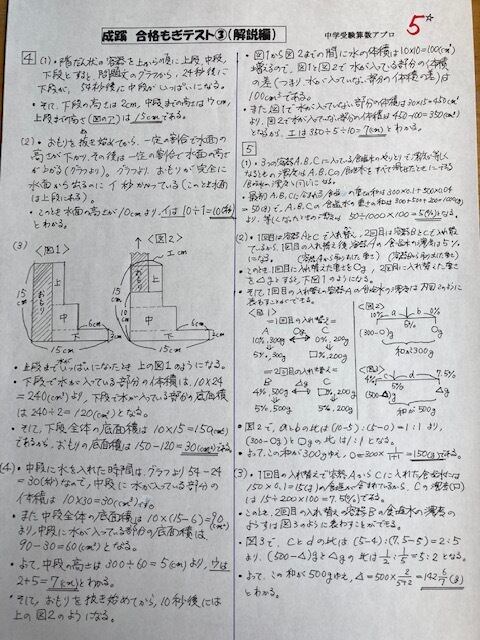 成蹊 合格もぎテスト③(解説編)
中学受験算数アプロ
5☆
4 (1)・階だん状の容器を上から順に上段、中段、
下段とすると、問題文のグラフから、24秒後に
下段が、54秒後に中段がいっぱいになる。
・そして、下段の高さは2cm、中段までの高さはウcm、
上段まで高さ(図のア)は15cmである。
(2)・おもりを抜き始めてから、一定の割合で水面の
高さが下がり、その後は一定の割合で水面の高さ
が上がる(グラフより)。グラフより、おもりが完全に
水面から出るのにイ秒かかっている(このとき水面
は上段にある)。
・このとき水面の高さが10cmより、イは10÷1=10(秒)
とわかる。
(3)
<図1>
<図2>
エcm
15cm
おもり
上
中
下
6cm
15cm
15cm
上
中
下
6cm
15cm
・上段まで水がいっぱいになったとき上の図1のようになる。
・下段で水が入っている部分の体積は、10×24
=240(cm³)より、下段で水が入っている部分の底面積
は240÷2=120(cm²)となる。
・そして、下段全体の底面積は10×15=150(cm²)
であるから、おもりの底面積は150-120=30(cm²)である。
(4)・中段に水を入れた時間は、グラフより54-24
=30(秒)なので、中段に水が入っている部分の
体積は10×30=300(cm³)である。
・また中段全体の底面積は10×(15-6)=90
(cm²)より、中段に水が入っている部分の底面積は
90-30=60(cm²)となる。
・よって、中段の高さは300÷60=5(cm)より、ウは
2+5=7(cm)とわかる。
・そして、おもりを抜き始めてから、10秒後には
上の図2のようになる。
・図1から図2までの間に水の体積は10×10=100(cm³)
増えるので、図1と図2で水が入っている部分の体積
の差(つまり、水が入っていない部分の体積の差)は
100cm³である。
・また図1で水が入っていない部分の体積は30×15=450cm³
より、図2で水が入っていない部分の体積は450-100=350(cm³)
となるから、エは350÷5÷10=7(cm)とわかる。
5
(1)・3つの容器A,B,Cに入っている食塩水のやりとりで濃度が等しく
なるときの濃度は、A,B,Cの食塩水をすべて混ぜたときにできる
食塩水の濃度と同じになる。
300×0.1+500×0.04
300+500+200=1000(g)
50÷1000×100=5(%)となる。
(2)・1回目は容器AとCで入れ替え、2回目は容器BとCで入れ替え
ているから、1回目の入れ替え後、容器Aの食塩水の濃度は5%
になる。
・このとき、1回目に入れ替えた重さを○g、2回目に入れ替えた重さ
を△gとすると、下図1のようになる。
・そして1回目の入れ替えの容器Aの食塩水の濃度は下図2のように
表わすことができる。
<図1>
=1回目の入れ替え=
A ○g C
10%,300g 0%,200g
5%,300g □%,200g
=2回目の入れ替え=
B △g C
4%,500g □%,200g
5%,500g 5%,200g
<図2>
10% a b 0%
5%
(300-○)g ○g
和が300g
<図3>
4% c d 7.5%
5%
(500-△)g △g
和が500g
・図2で、aとbの比は(10-5):(5-0)=1:1より、
(300-○)gと○gの比は1:1となる。
・よって、この和が300gゆえ、○=300×1/(1+1)=150(g)である。
(3)・1回目の入れ替えで容器AからCに入れた食塩水には
150×0.1=15(g)の食塩が含まれているから、Cの濃度(□)
は15÷200×100=7.5(%)である。
・このとき、2回目の入れ替えの容器Bの食塩水の濃度の
ようすは図3のように表わすことができる。
・図3で、cとdの比は(5-4):(7.5-5)=2:5
より、(500-△)gと△gの比は1/2:1/5=5:2となる。
・よって、この和が500gゆえ、△=500×2/(5+2)=142 6/7(g)
とわかる。